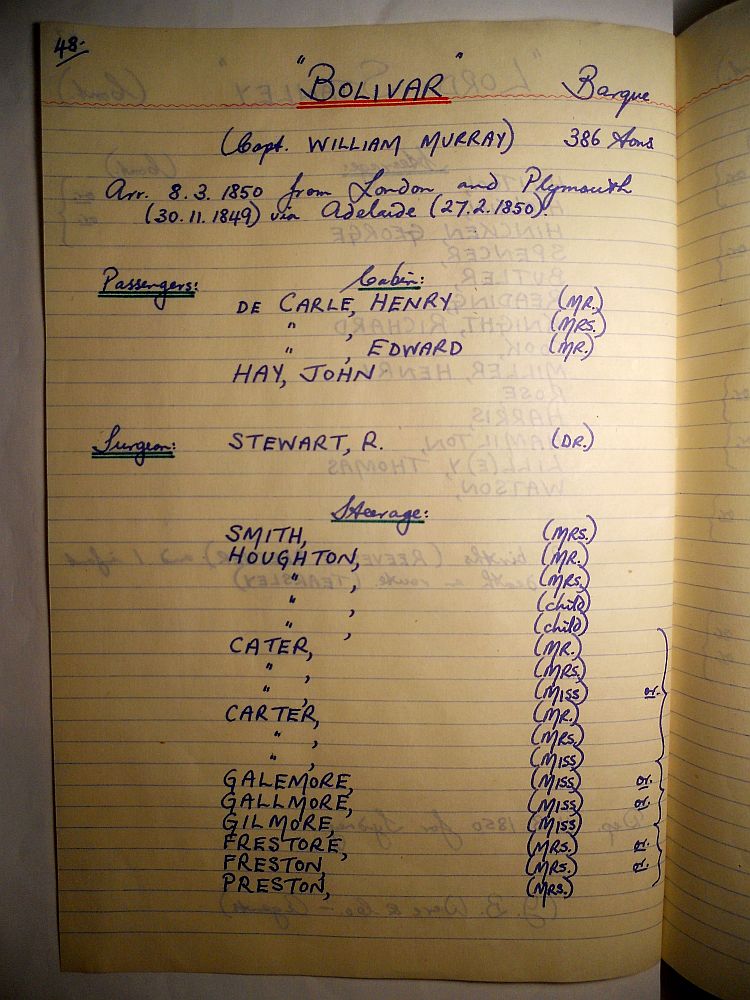 48.
"BOLIVAR" Barque
(Capt. WILLIAM MURRAY) 386 tons
Arr. 8.3.1850 from London and Plymouth
(30.11.1849) via Adelaide (27.2.1850).
Passengers: Cabin:
DE CARLE, HENRY (MR.)
" , (MRS.)
" , EDWARD (MR.)
HAY, JOHN
Surgeon: STEWART, R. (DR.)
Steerage:
SMITH, (MRS.)
HOUGHTON, (MR.)
" , (MRS.)
" , (child)
" , (child)
CATER, (MR.)
" , (MRS.)
" , (MISS) or.
CARTER, (MR.)
" , (MRS.)
" , (MISS)
GALEMORE, (MISS) or.
GALLMORE, (MISS) or.
GILMORE, (MISS)
FRESTORE, (MRS.) or.
FRESTON, (MRS.) or.
PRESTON, (MRS.)